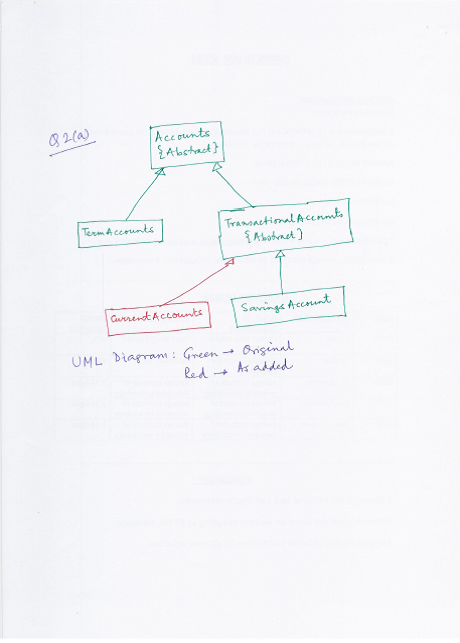 Q2(a)
Accounts
{Abstract}
TermAccounts
TransactionalAccounts
{Abstract}
CurrentAccounts
SavingsAccount
UML Diagram: Green → Original
Red → As added